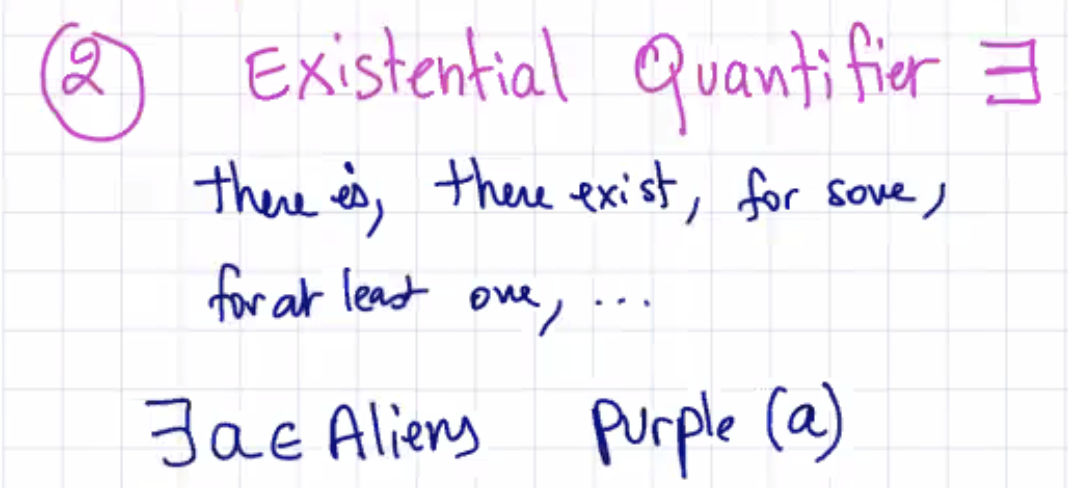 ② Existential Quantifier ∃
there is, there exist, for some,
for at least one, ...
∃a∈Aliens Purple (a)